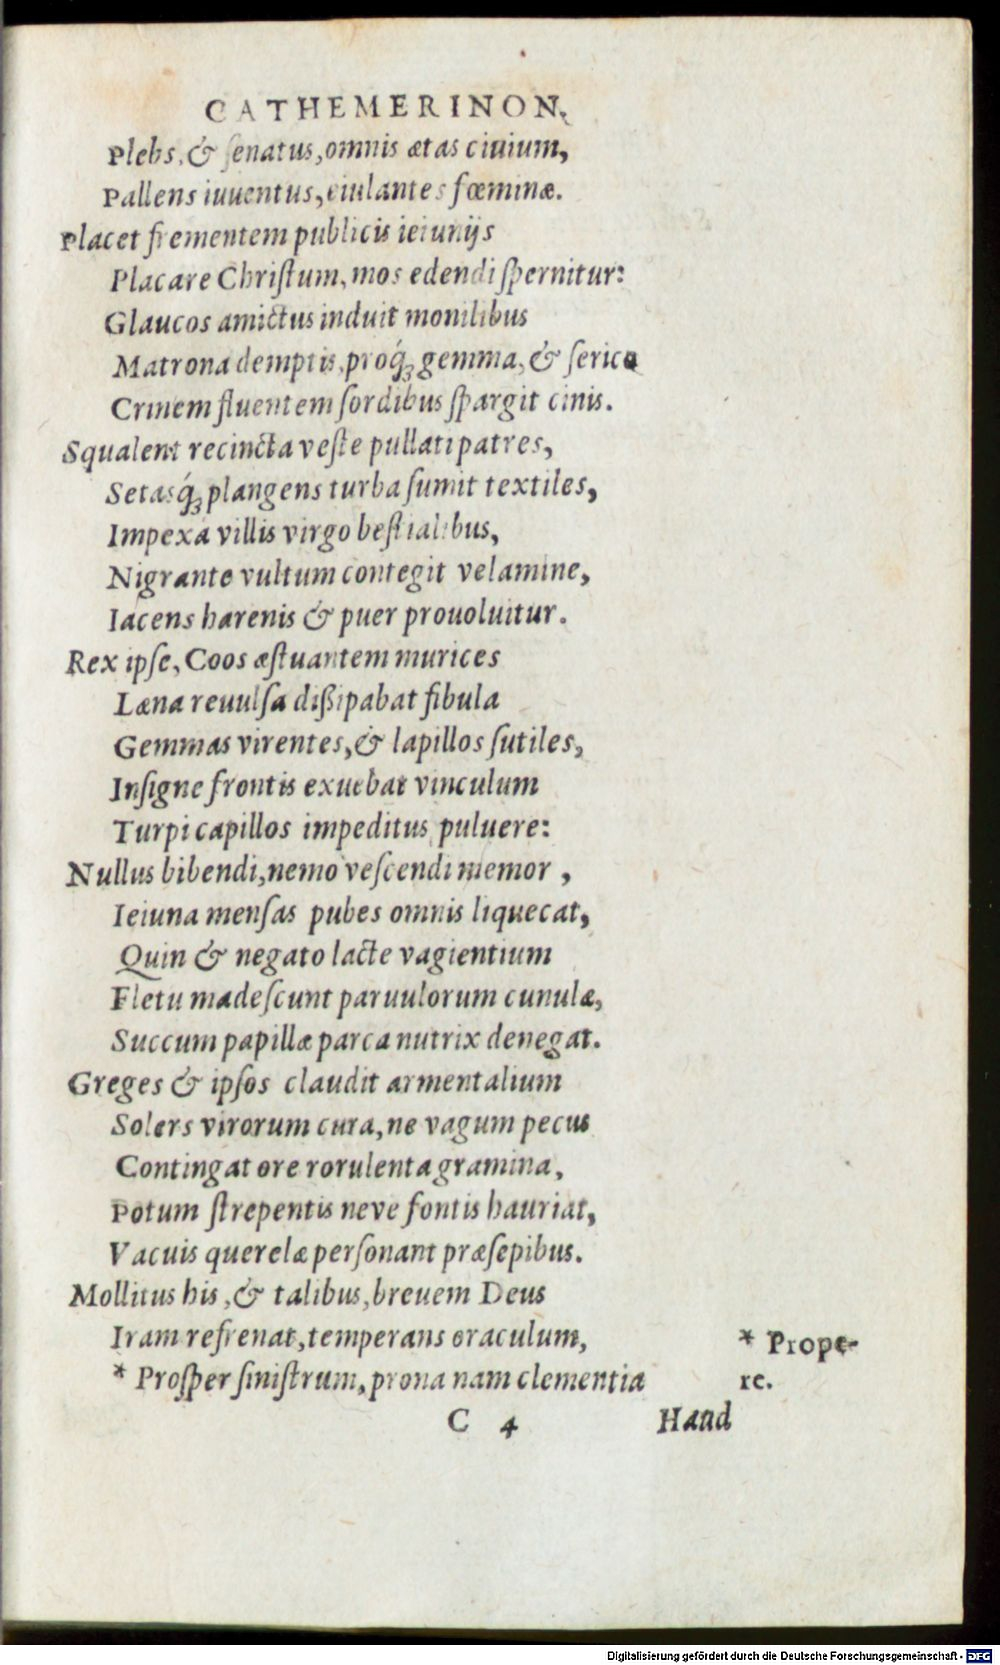 CATHEMERINON.
Plebs, & ſenatus, omnis ætas ciuium,
Pallens iuuentus, eiulantes fœminæ.
Placet frementem publicis ieiunijs
Placare Chriſtum, mos edendi ſpernitur:
Glaucos amictus induit monilibus
Matrona demptis, proq́ꝫ gemma, & ſerico
Crinem fluentem ſordibus ſpargit cinis.
Squalent recincta veſte pullati patres,
Setasq́ꝫ plangens turba ſumit textiles,
Impexa villis virgo beſtialibus,
Nigrante vultum contegit velamine,
Iacens harenis & puer prouoluitur.
Rex ipſe, Coos æſtuantem murices
Læna reuulſa dißipabat fibula
Gemmas virentes, & lapillos ſutiles,
Inſigne frontis exuebat vinculum
Turpi capillos impeditus puluere:
Nullus bibendi, nemo veſcendi memor ,
Ieiuna menſas pubes omnis liquecat,
Quin & negato lacte vagientium
Fletu madeſcunt paruulorum cunulæ,
Succum papillæ parca nutrix denegat.
Greges & ipſos claudit armentalium
Solers virorum cura, ne vagum pecus
Contingat ore rorulenta gramina,
Potum ſtrepentis neve fontis hauriat,
Vacuis querelæ perſonant præſepibus.
Mollitus his, & talibus, breuem Deus
Iram refrenat, temperans oraculum,
* Proſper ſiniſtrum, prona nam clementia
* Prope-
re.
C 4 Haud
Digitalisierung gefördert durch die Deutsche Forschungsgemeinschaft - DFG